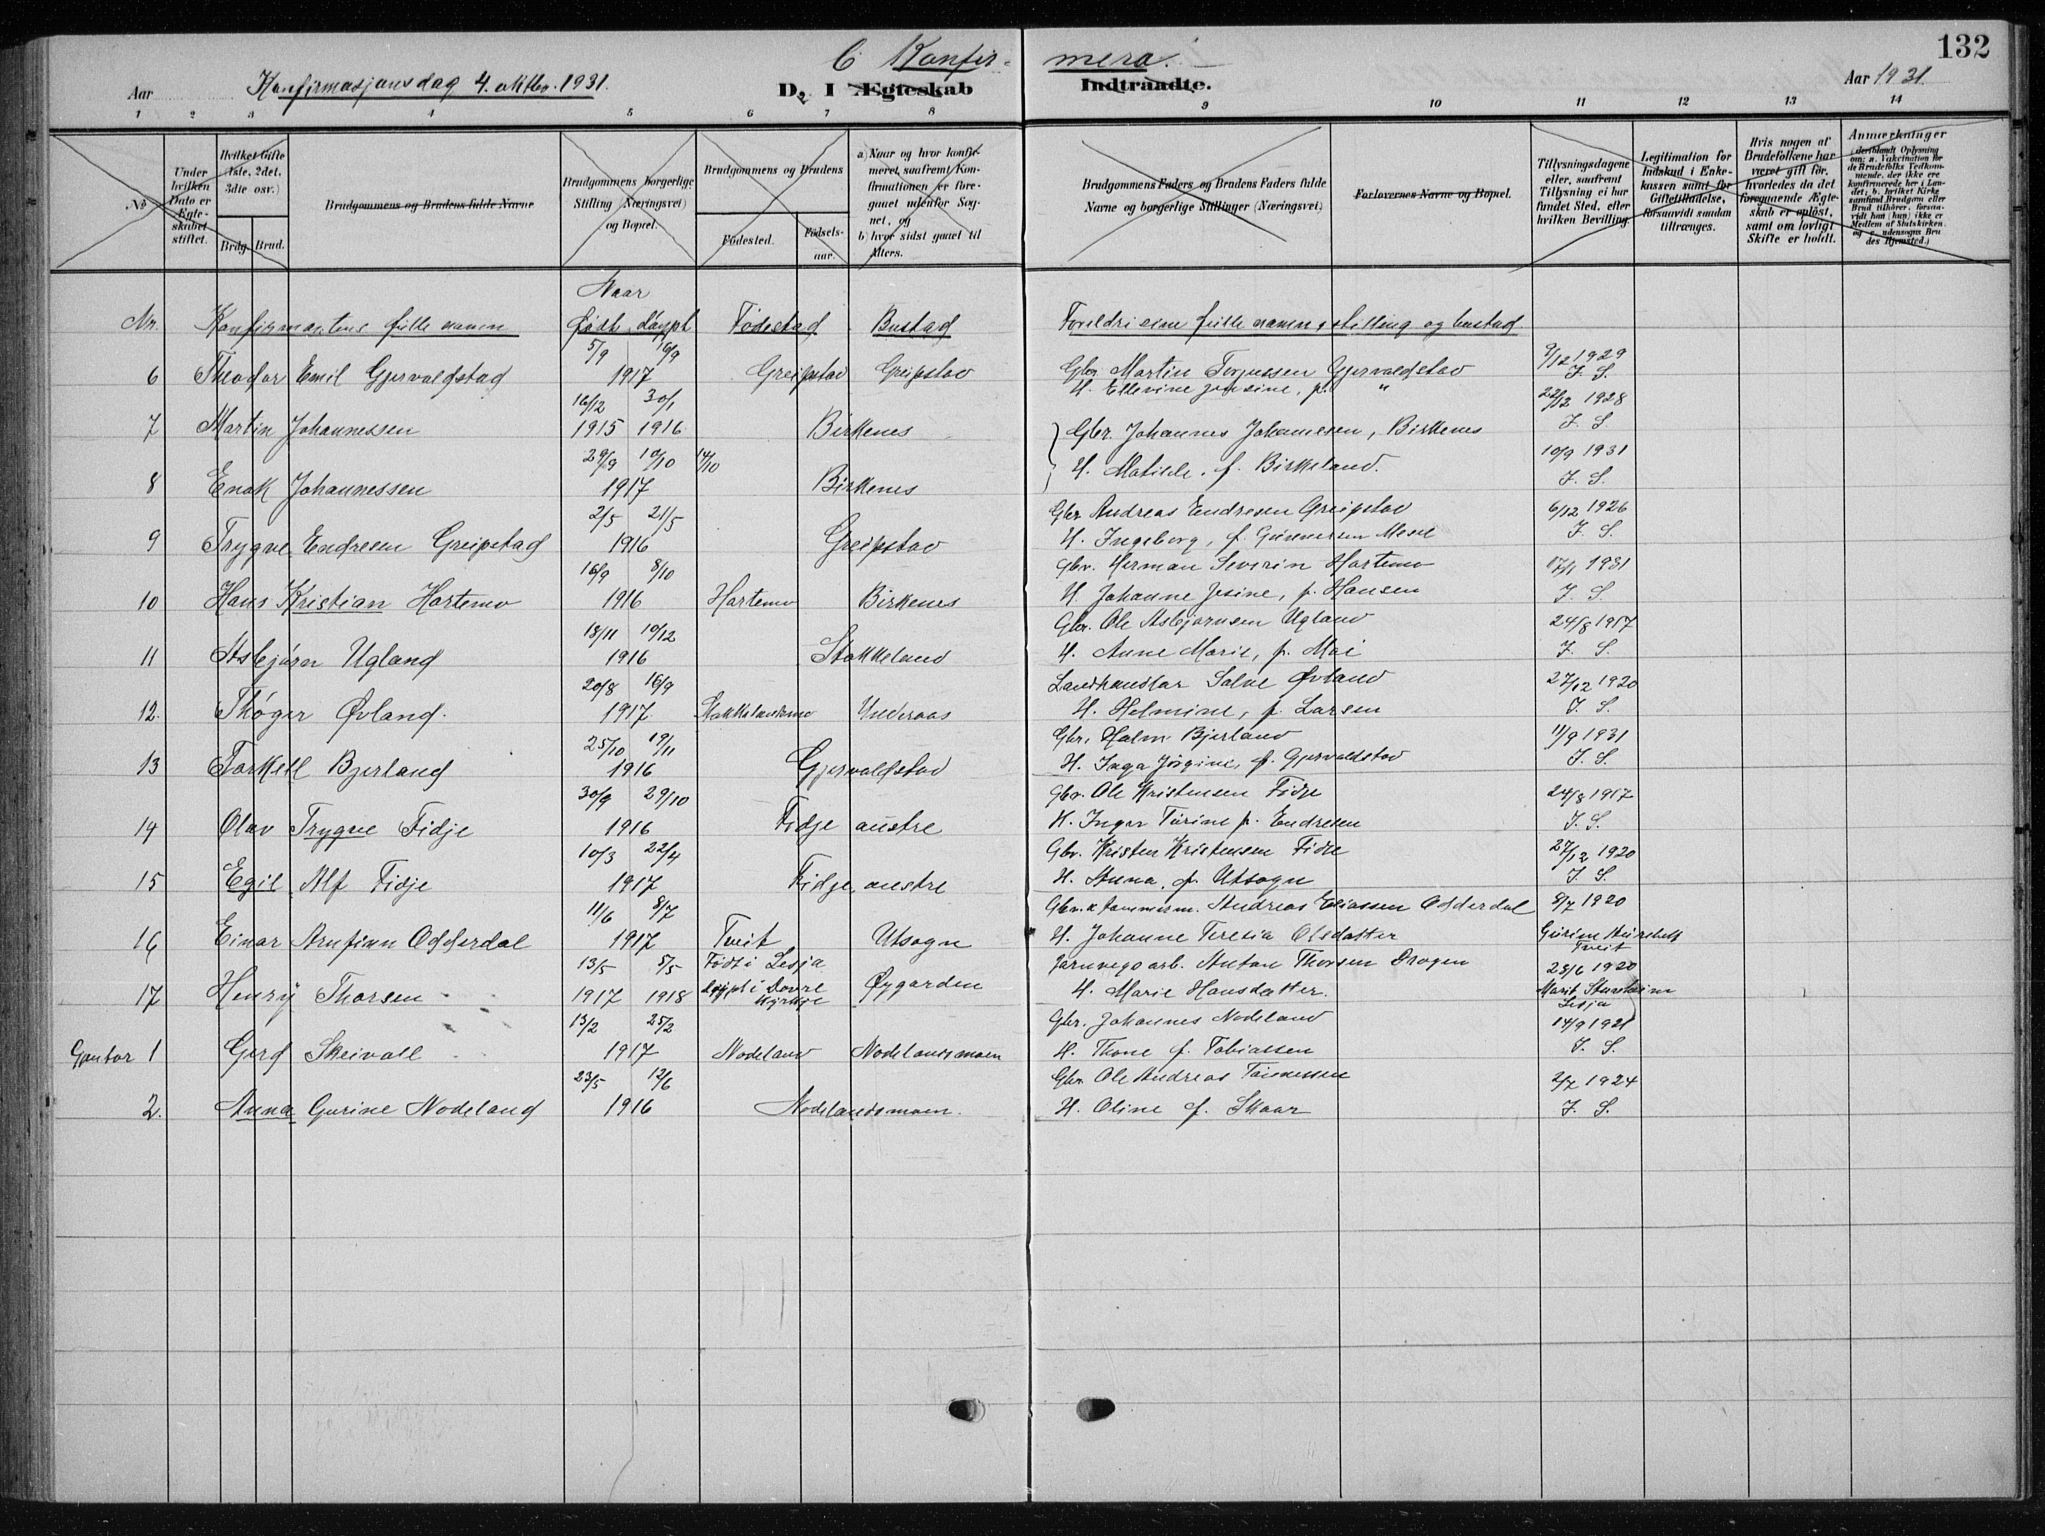 132
C Konfir- mera.
Konfirmasjonsdag 4. oktbr. 1931.
Aar
D. I Ægteskab Indtraadte.
Aar 1931
1 2 3 4 5 6 7 8 9 10 11 12 13 14
No
Under hvilken Dato er Ægteskabet stiftet.
Hvilket Gifte (1ste, 2det, 3die osv.)
Brdg. Brud.
Brudgommens og Brudens fulde Navne
Brudgommens borgerlige Stilling (Næringsvei) og Bopæl.
Brudgommens og Brudens
Fødested. Fødsels-aar.
a) Naar og hvor konfirmeret, saafremt Konfirmationen er foregaaet udenfor Sognet, og
b) hvor sidst gaaet til Alters.
Brudgommens Faders og Brudens Faders fulde Navne og borgerlige Stillinger (Næringsvei)
Forlovernes Navne og Bopæl.
Tillysningsdagene eller, saafremt Tillysning ei har fundet Sted, efter hvilken Bevilling
Legitimation for Indskud i Enkekassen samt for Giftetilladelse, forsaavidt saadan tiltrænges.
Hvis nogen af Brudefolkene har været gift før, hvorledes da det foregaaende Ægteskab er opløst, samt om lovligt Skifte er holdt.
Anmerkninger
(deriblandt Oplysning om: a. Vakcination for de Brudefolks Vedkommende, der ikke ere konfirmerede her i Landet; b. hvilket Kirkesamfund Brudgom eller Brud tilhører, forsaavidt han (hun) ikke er Medlem af Statskirken, og c. udensogns Brudes Hjemsted.)
Naar
Nr. Konfirmantens fulle namn født døypt Fødestad Bustad Foreldri sine fulle namn, stilling og bustad
5/9 16/9 9/12 1929
6 Theodor Emil Gjervaldstad 1917 Greipstad Greipstad Gbr. Martin Torjussen Gjervaldstad J. S.
H. Ellevine Jensine, f. "
16/12 30/1 22/12 1928
7 Martin Johannessen 1915 1916 Birkenes Gbr. Johannes Johannesen, Birkenes J. S
29/9 10/10 14/10 10/9 1931
8 Enok Johannessen 1917 Birkenes H. Matilde. f. Birkeland. J. S.
2/5 21/5 Gbr Andreas Endresen Greipstad 6/12 1926
9 Trygve Endresen Greipstad 1916 Greipstad H. Ingeborg, f. Gunnersen Mesel J. S.
16/9 8/10 Gbr. Herman Severin Hortemo 17/1 1931
10 Hans Kristian Hortemo 1916 Hortemo Birkenes H Johanne Jesine, f. Hansen J. S
18/11 10/12 Gbr. Ole Asbjørnsen Ugland 24/8 1917
11 Asbjørn Ugland 1916 Stokkeland H. Anne Marie, f. Moi J. S.
20/8 16/9 Landhandlar Salve Øvland 27/12 1920
12. Thøger Øvland. 1917 Stokkelandsmo Underaas H. Helmine, f. Larsen J. S.
25/10 19/11 Gbr, Holm Bjerland 11/9 1931
13 Torkell Bjerland 1916 Gjervaldstad H. Inga Jørgine, f. Gjervaldstad J. S.
30/9 29/10 Gbr. Ole Kristensen Fidje 24/8 1917
14 Olav Trygve Fidje 1916 Fidje austre H. Inger Turine f. Endresen J. S.
10/3 22/4 Gbr. Kristen Kristensen Fidje 27/12 1920
15 Egil Alf Fidje 1917 Fidje austre H. Anna, f. Utsogn J. S.
11/6 8/7 Gbr. & tømmerm. Andreas Eliassen Odderdal 8/7 1920
16 Einar Arnfinn Odderdal 1917 Tveit Utsogn H. Johanne Teresia Olsdatter Gurine
Tveit
13/5 5/5 Født i Lesja Jarnvegsarb. Anton Thorsen Drogen 28/6 1920
17 Henry Thorsen 1917 1918 Døypt i Dovre Kyrkje Øygarden H. Marie Hansdatter. Marit
Lesja
13/2 25/2 Gbr. Johannes Nodeland 14/9 1921
Gjentor 1 Gerd Skeivoll 1917 Nodeland Nodelandsmoen H. Thone f. Tobiassen J. S.
23/5 12/6 Gbr Ole Andreas Tønnessen 2/7 1924
2. Anna Gurine Nodeland 1916 Nodelandsmoen. H. Oline f. Skaar J. S.